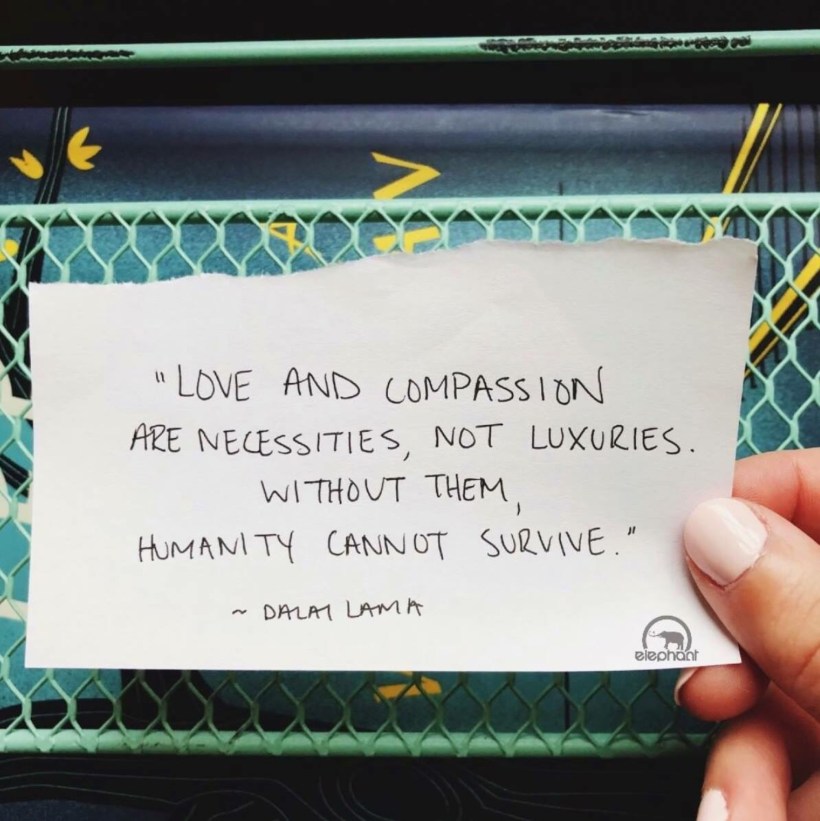 "LOVE AND COMPASSION
ARE NECESSITIES, NOT LUXURIES.
WITHOUT THEM,
HUMANITY CANNOT SURVIVE."
~ DALAI LAMA
elephant